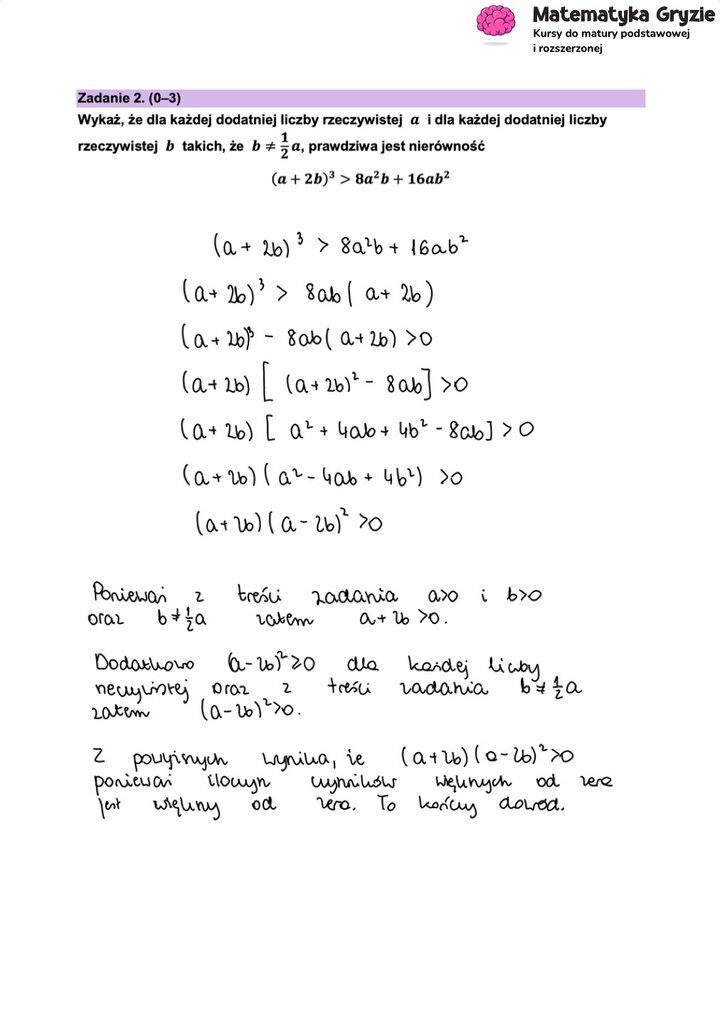 Matematyka Gryzie
Kursy do matury podstawowej
i rozszerzonej
Zadanie 2. (0–3)
Wykaż, że dla każdej dodatniej liczby rzeczywistej a i dla każdej dodatniej liczby
rzeczywistej b takich, że b ≠ 1/2 a, prawdziwa jest nierówność
(a + 2b)³ > 8a²b + 16ab²
(a + 2b)³ > 8a²b + 16ab²
(a + 2b)³ > 8ab( a + 2b)
(a + 2b)³ - 8ab( a + 2b) >0
(a + 2b) [ (a + 2b)² - 8ab] >0
(a + 2b) [ a² + 4ab + 4b² - 8ab] > 0
(a + 2b) ( a² - 4ab + 4b²) >0
(a + 2b) ( a - 2b)² >0
Ponieważ z treści zadania a>0 i b>0
oraz b ≠ 1/2 a zatem a + 2b >0.
Dodatkowo (a - 2b)² ≥ 0 dla każdej liczby
rzeczywistej oraz z treści zadania b ≠ 1/2 a
zatem (a - 2b)² >0.
Z powyższych wynika, że (a + 2b) (a - 2b)² >0
ponieważ iloczyn czynników większych od zera
jest większy od zera. To kończy dowód.